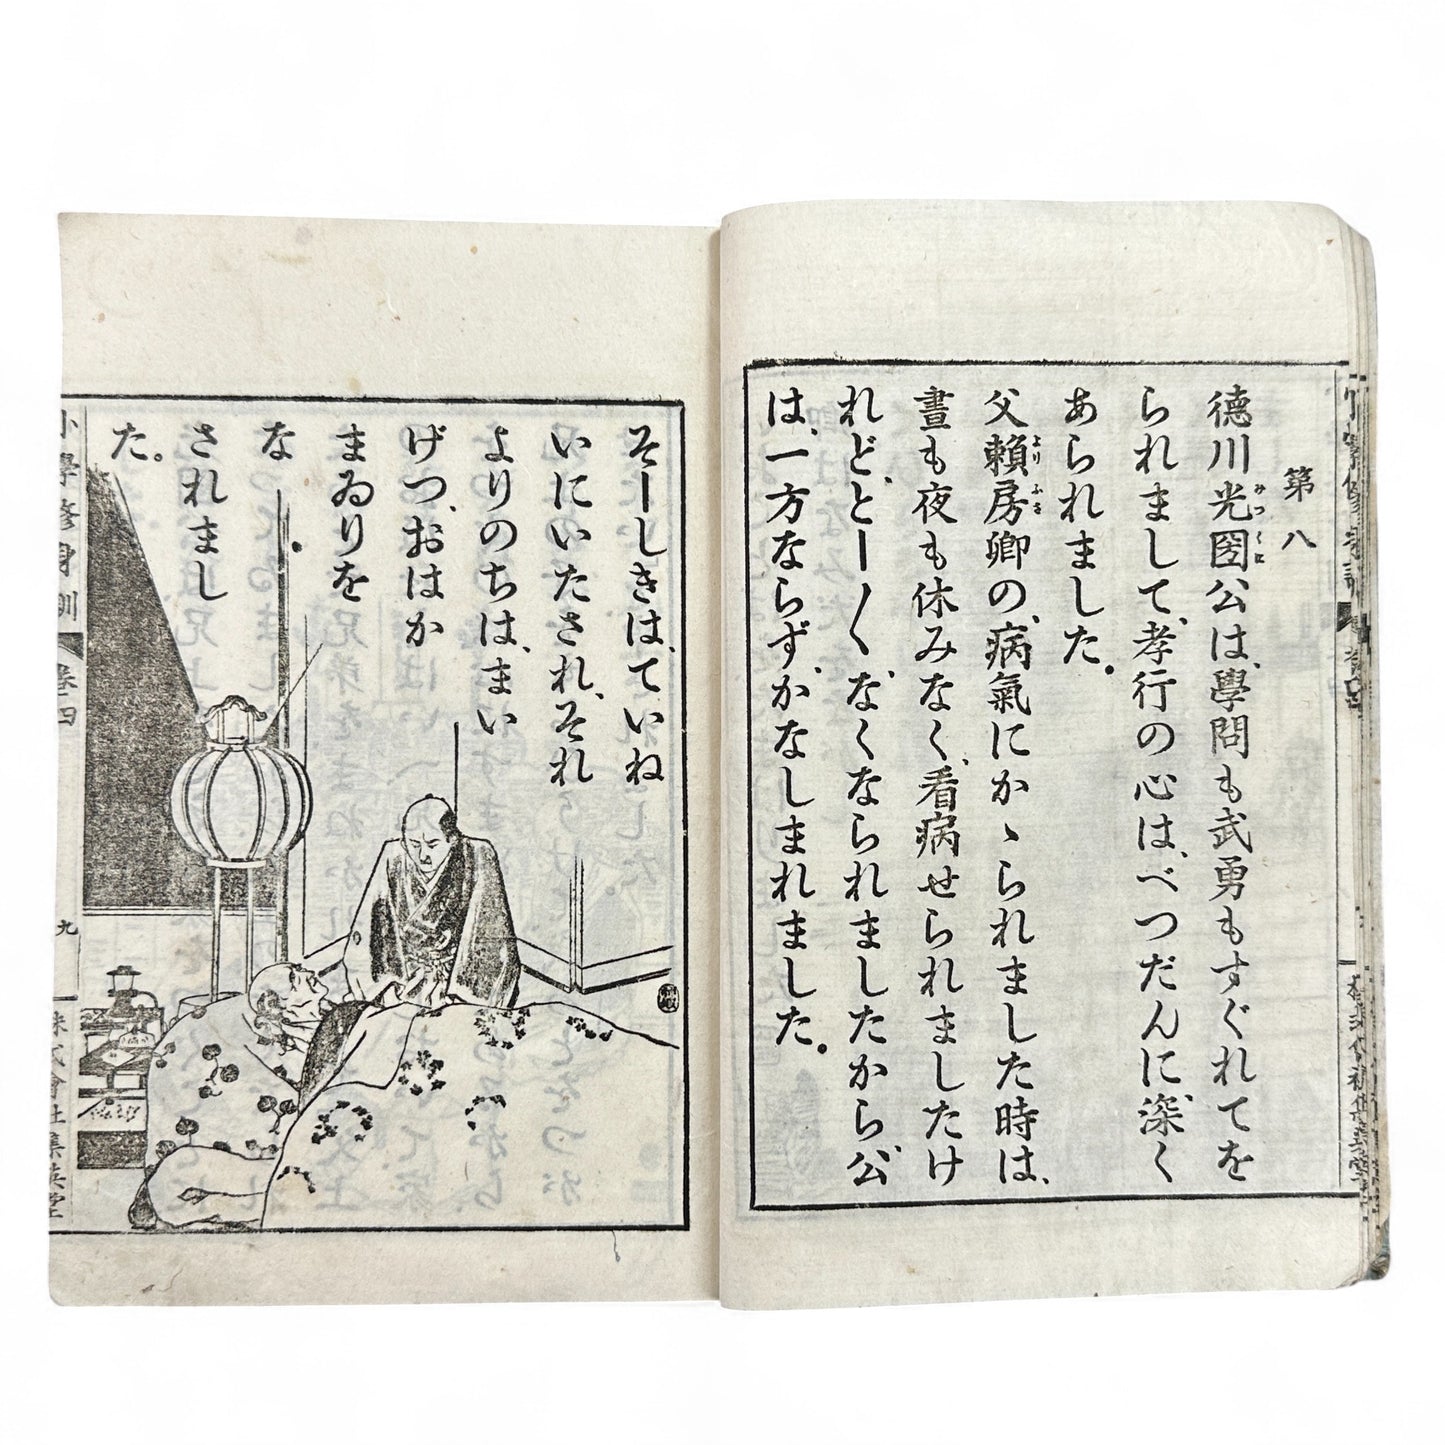 第八
德川光圀公は、學問も武勇もすぐれてを
みつくに
られまして、孝行の心は、べつだんに、深く
あられました。
父賴房卿の、病氣にかゝられました時は、
よりふさ
晝も夜も休みなく、看病せられましたけ
れど、とー〳〵、なくなられましたから、公
は、一方ならず、かなしまれました。
そーしきは、ていね
いにいたされ、それ
よりのちは、まい
げつ、おはか
まゐりを
な
されまし
た。
小學修身訓 卷四
九
株式會社集英堂